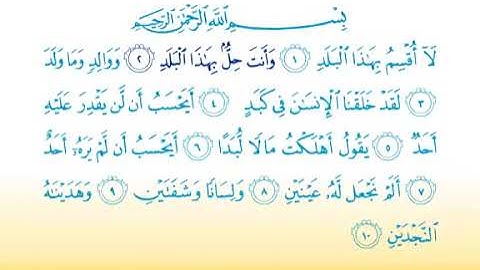 بِسْمِ اللَّهِ الرَّحْمَٰنِ الرَّحِيمِ
لَآ أُقْسِمُ بِهَٰذَا الْبَلَدِ ١ وَأَنتَ حِلٌّۢ بِهَٰذَا الْبَلَدِ ٢ وَوَالِدٍ وَمَا وَلَدَ
٣ لَقَدْ خَلَقْنَا الْإِنسَٰنَ فِى كَبَدٍ ٤ أَيَحْسَبُ أَن لَّن يَقْدِرَ عَلَيْهِ
أَحَدٌ ٥ يَقُولُ أَهْلَكْتُ مَالًا لُّبَدًا ٦ أَيَحْسَبُ أَن لَّمْ يَرَهُۥٓ أَحَدٌ
٧ أَلَمْ نَجْعَل لَّهُۥ عَيْنَيْنِ ٨ وَلِسَانًا وَشَفَتَيْنِ ٩ وَهَدَيْنَٰهُ
النَّجْدَيْنِ ١٠